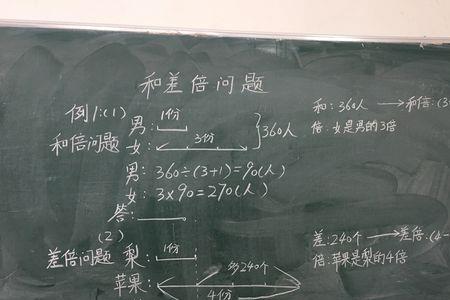 和差倍问题
例1:(1)
1份
男:
和倍问题 女:
3份
360人
男: 360÷(3+1)=90(人)
女: 3×90=270(人)
答:
(2)
差倍问题 梨:
1份
苹果:
240个
4份
和: 360人 → 和倍: (3
倍: 女是男的3倍
差: 240个 → 差倍: (4-
倍: 苹果是梨的4倍